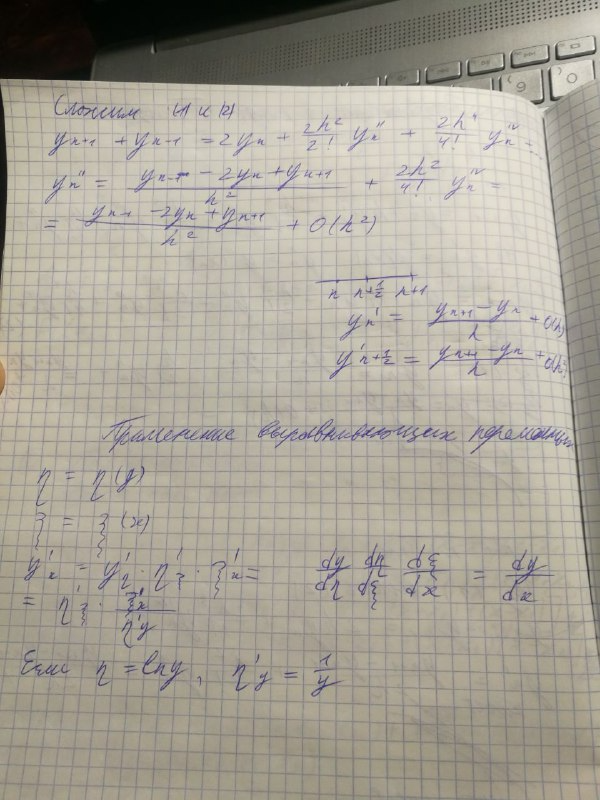 Сложим (1) и (2)
y_{n+1} + y_{n-1} = 2y_n + \frac{2h^2}{2!} y_n'' + \frac{2h^4}{4!} y_n^{IV} + ...
y_n'' = \frac{y_{n-1} - 2y_n + y_{n+1}}{h^2} + \frac{2h^2}{4!} y_n^{IV} =
= \frac{y_{n-1} - 2y_n + y_{n+1}}{h^2} + O(h^2)
n n+\frac{1}{2} n+1
y_n' = \frac{y_{n+1} - y_n}{h} + O(h)
y'_{n+\frac{1}{2}} = \frac{y_{n+1} - y_n}{h} + O(h^2)
Применение выравнивающих переменных
η = η(y)
ξ = ξ(x)
y'_x = y'_η · η'_ξ · ξ'_x = \frac{dy}{dη} \frac{dη}{dξ} \frac{dξ}{dx} = \frac{dy}{dx}
= η'_ξ · \frac{ξ'_x}{η'_y}
Если η = ln y, η'_y = \frac{1}{y}